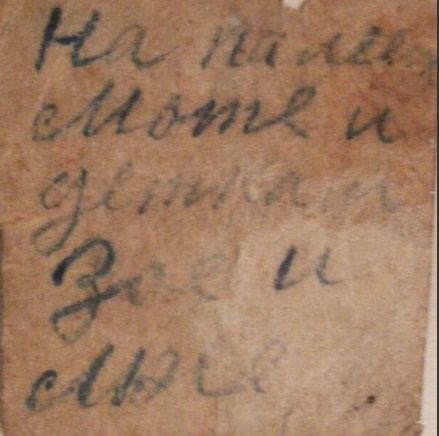 На память
Моте и
деткам
Зое и
Люсе